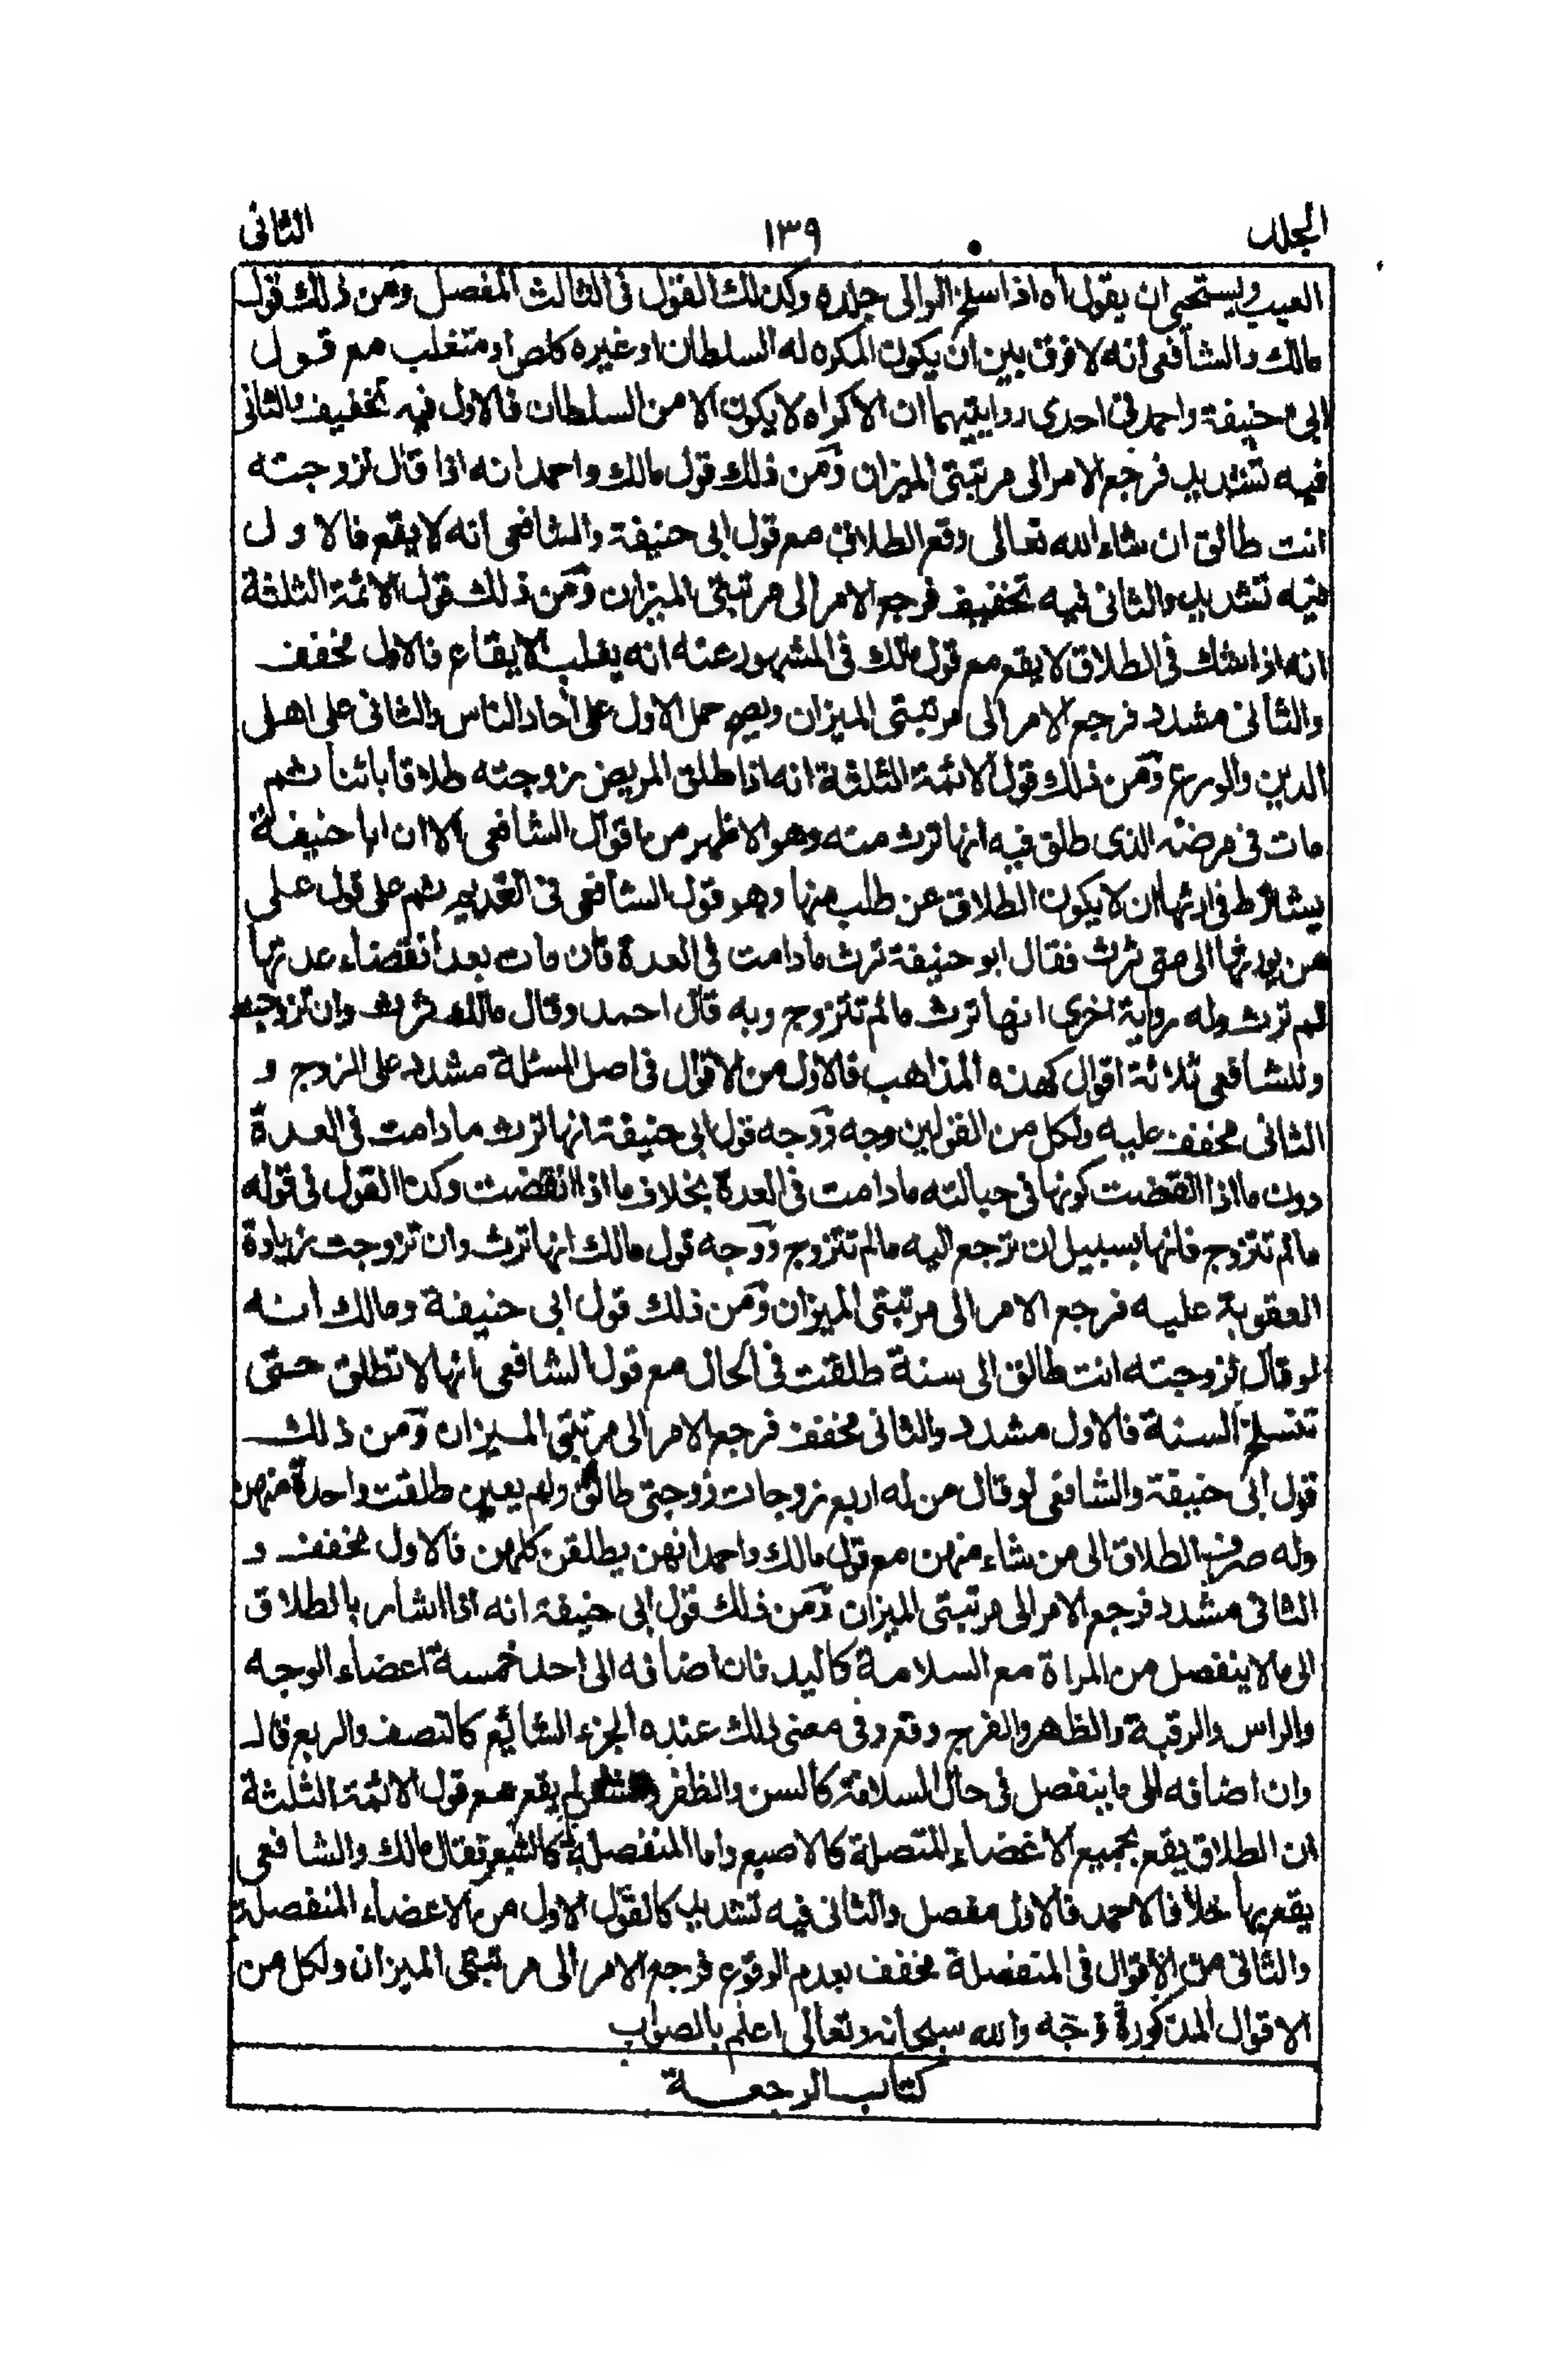 المجلد ١٣٩ الثانى
العيب ويستحيى ان يقول آه اذا سلخ الوالى جلده وكذلك القول فى الثالث المفصل ومن ذلك قول
مالك والشافعى انه لا فرق بين ان يكون المكره له السلطان او غيره كلص او متغلب مع قول
ابى حنيفة واحمد فى احدى روايتيهما ان الاكراه لا يكون الا من السلطان فالاول فيه تخفيف والثانى
فيه تشديد فرجع الامر الى مرتبتى الميزان ومن ذلك قول مالك واحمد انه اذا قال لزوجته
انت طالق ان شاء الله تعالى وقع الطلاق مع قول ابى حنيفة والشافعى انه لا يقع فالاول
فيه تشديد والثانى فيه تخفيف فرجع الامر الى مرتبتى الميزان ومن ذلك قول الائمة الثلثة
انه اذا شك فى الطلاق لا يقع مع قول مالك فى المشهور عنه انه يغلب الايقاع فالاول مخفف
والثانى مشدد فرجع الامر الى مرتبتى الميزان ويصح حمل الاول على آحاد الناس والثانى على اهل
الدين والورع ومن ذلك قول الائمة الثلثة انه اذا طلق المريض زوجته طلاقا بائنا ثم
مات فى مرضه الذى طلق فيه انها ترث منه وهو الاظهر من اقوال الشافعى الا ان ابا حنيفة
يشترط فى ارثها ان لا يكون الطلاق عن طلب منها وهو قول الشافعى فى القديم ثم على قول على
من يورثها الى متى ترث فقال ابو حنيفة ترث ما دامت فى العدة فان مات بعد انقضاء عدتها
لم ترث وله رواية اخرى انها ترث ما لم تتزوج وبه قال احمد وقال مالك ترث وان تزوجت
وللشافعى ثلاثة اقوال كهذه المذاهب فالاول من الاقوال فى اصل المسئلة مشدد على الزوج و
الثانى مخفف عليه ولكل من القولين وجه ووجه قول ابى حنيفة انها ترث ما دامت فى العدة
دون ما اذا انقضت كونها فى حبالته ما دامت فى العدة بخلاف ما اذا انقضت وكذا القول فى قوله
ما لم تتزوج فانها بسبيل ان ترجع اليه ما لم تتزوج ووجه قول مالك انها ترث وان تزوجت زيادة
العقوبة عليه فرجع الامر الى مرتبتى الميزان ومن ذلك قول ابى حنيفة ومالك انه
لو قال لزوجته انت طالق الى سنة طلقت فى الحال مع قول الشافعى انها لا تطلق حتى
تنسلخ السنة فالاول مشدد والثانى مخفف فرجع الامر الى مرتبتى الميزان ومن ذلك
قول ابى حنيفة والشافعى لو قال من له اربع زوجات زوجتى طالق ولم يعين طلقت واحدة منهن
وله صرف الطلاق الى من شاء منهن مع قول مالك واحمد انهن يطلقن كلهن فالاول مخفف و
الثانى مشدد فرجع الامر الى مرتبتى الميزان ومن ذلك قول ابى حنيفة انه اذا اشار بالطلاق
الى ما لا ينفصل من المراة مع السلامة كاليد فان اضافه الى احد خمسة اعضاء الوجه
والراس والرقبة والظهر والفرج وقع وفى معنى ذلك عنده الجزء الشائع كالنصف والربع قال
وان اضافه الى ما ينفصل فى حال السلامة كالسن والظفر لم يقع مع قول الائمة الثلثة
ان الطلاق يقع بجميع الاعضاء المتصلة كالاصبع واما المنفصلة كالشعر فقال مالك والشافعى
يقع بها خلافا لاحمد فالاول مفصل والثانى فيه تشديد كالقول الاول من الاعضاء المنفصلة
والثانى من الاقوال فى المنفصلة مخفف بعدم الوقوع فرجع الامر الى مرتبتى الميزان ولكل من
الاقوال المذكورة وجه والله سبحانه وتعالى اعلم بالصواب
كتاب الرجعة